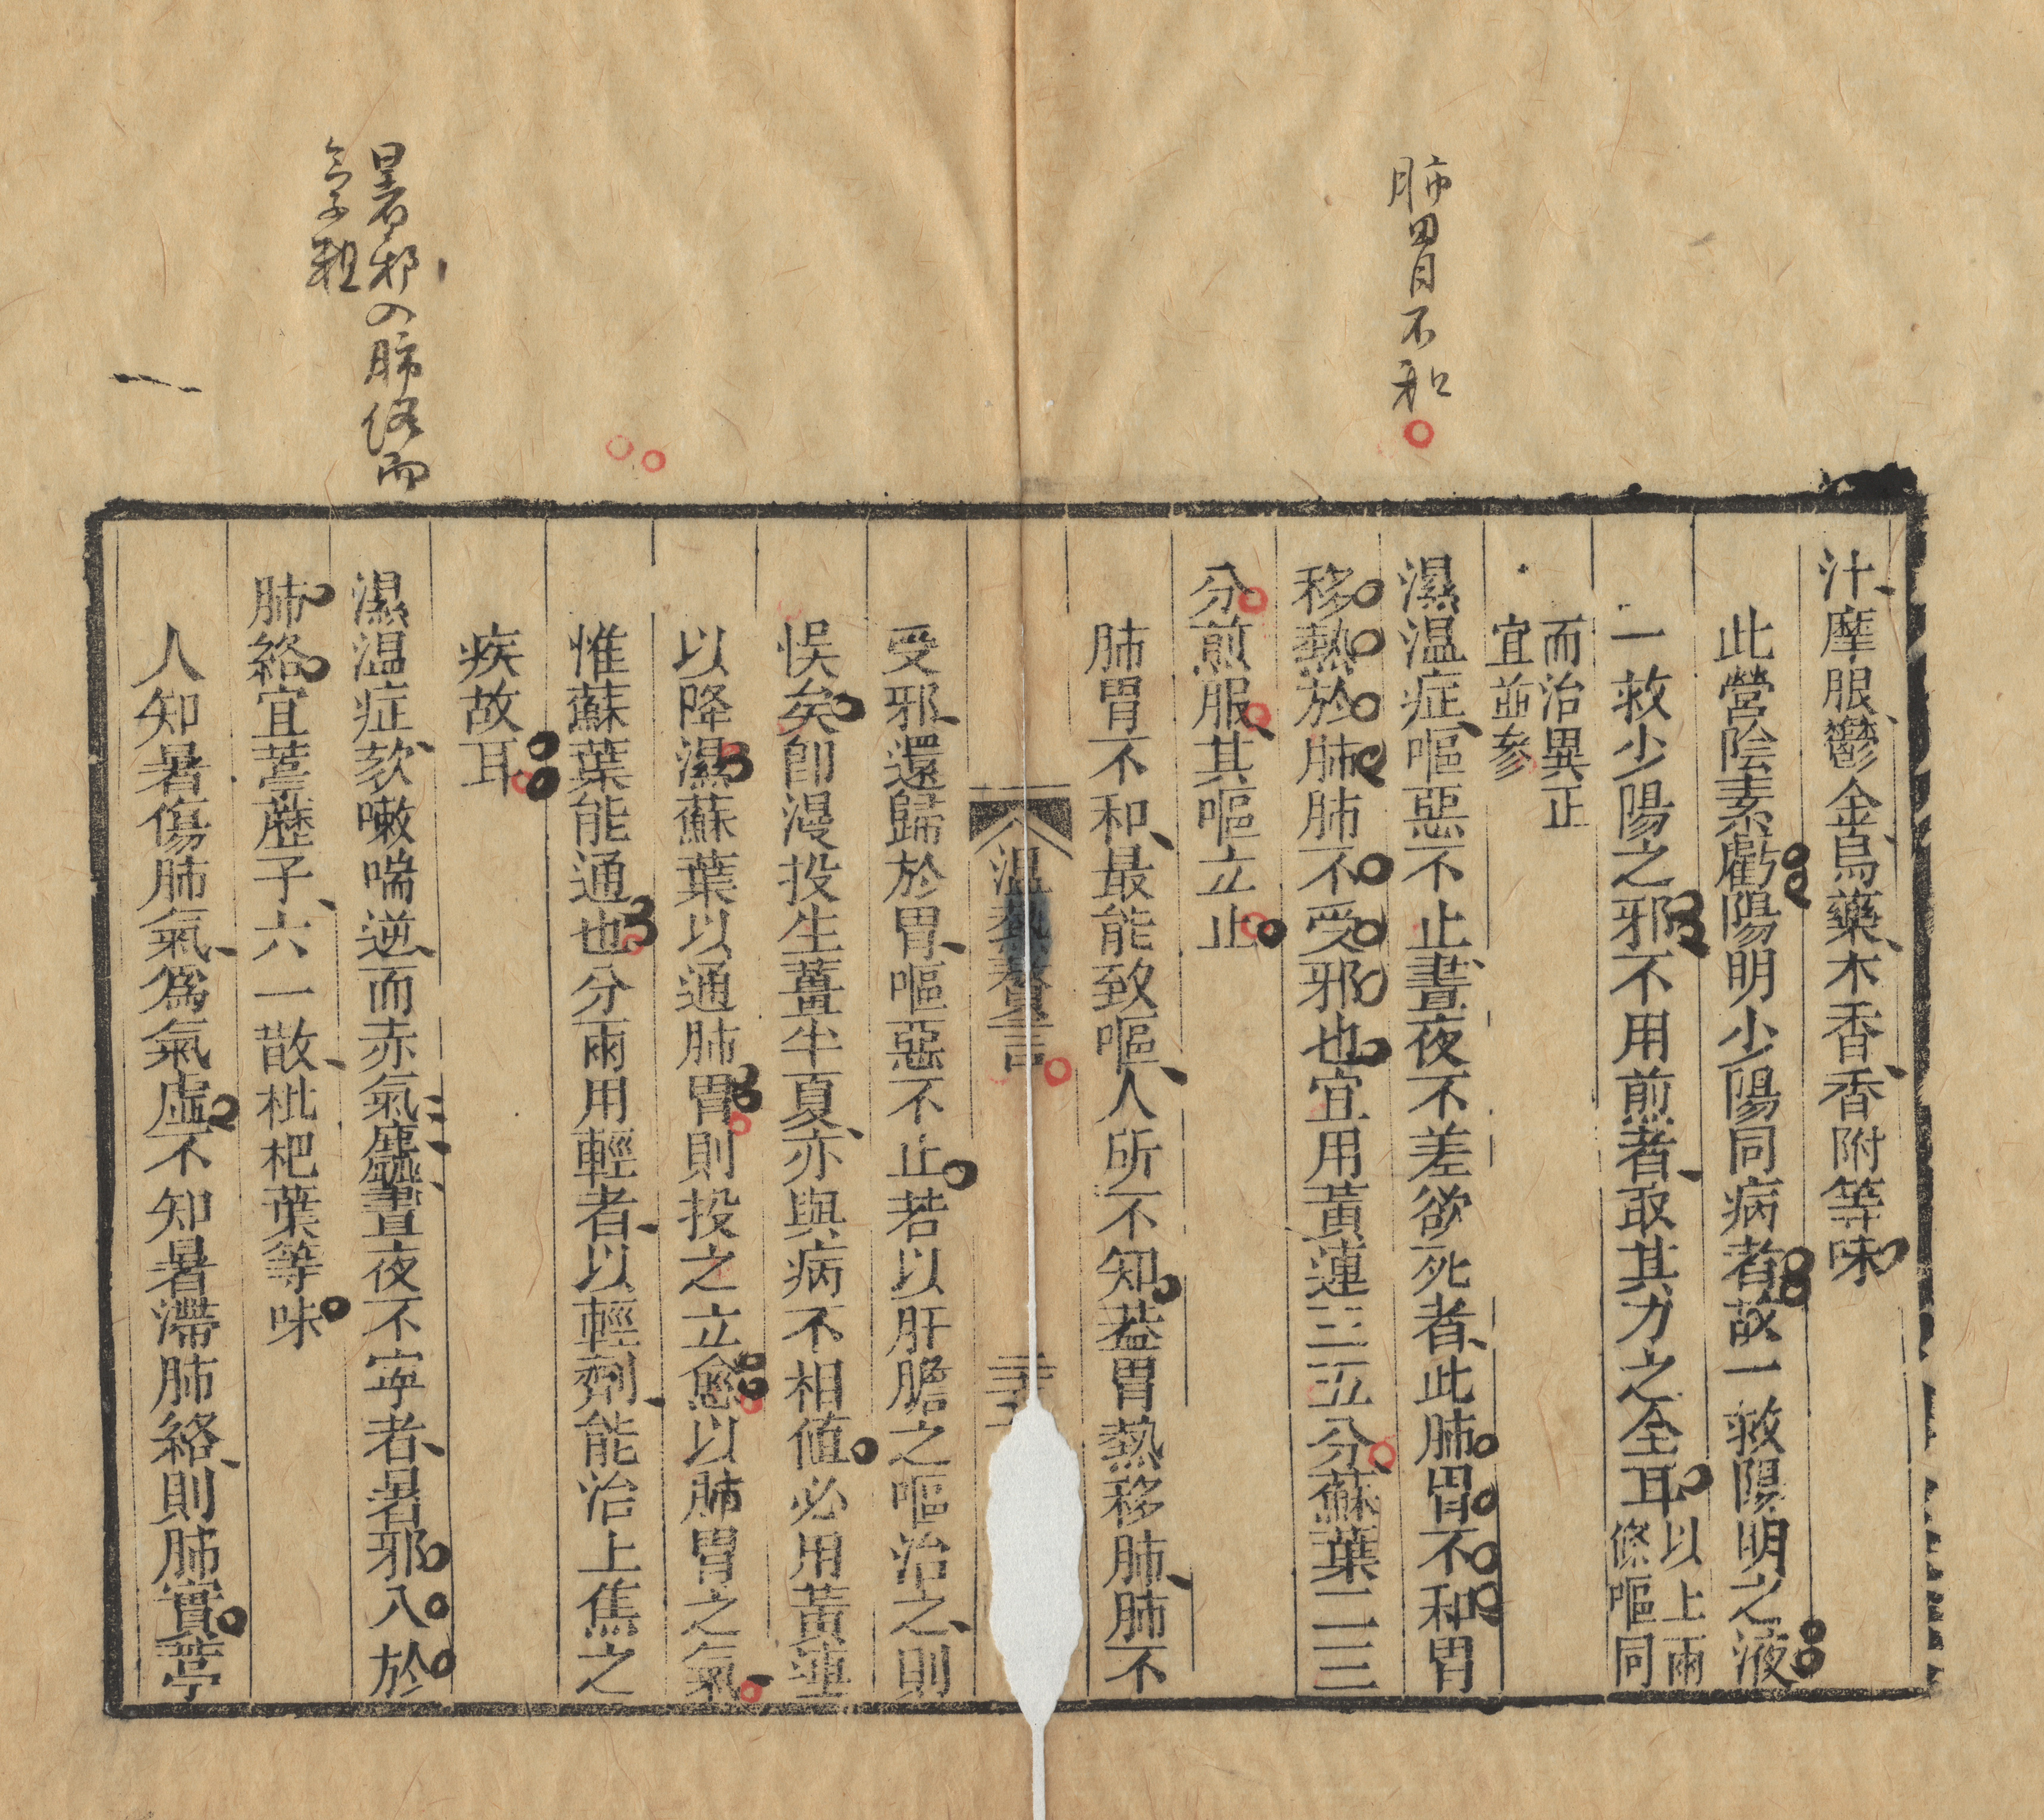 肺胃不和
汁摩服鬱金烏藥木香香附等味
此營陰素虧陽明少陽同病者故一救陽明之液
一救少陽之邪不用煎者取其力之全耳以上兩
條嘔同
而治異正
宜並參
濕温症嘔惡不止晝夜不差欲死者此肺胃不和胃
移熱於肺肺不受邪也宜用黃連三五分蘇葉二三
分煎服其嘔立止
肺胃不和最能致嘔人所不知葢胃熱移肺肺不
温熱贅言
受邪還歸於胃嘔惡不止若以肝膽之嘔治之則
悞矣卽漫投生薑半夏亦與病不相值必用黃連
以降濕蘇葉以通肺胃則投之立愈以肺胃之氣
惟蘇葉能通也分兩用輕者以輕劑能治上焦之
疾故耳
暑邪入肺络而
氣粗
濕温症欬嗽喘逆而赤氣麤晝夜不寜者暑邪入於
肺絡宜葶藶子六一散枇杷葉等味
人知暑傷肺氣爲氣虛不知暑滯肺絡則肺實葶